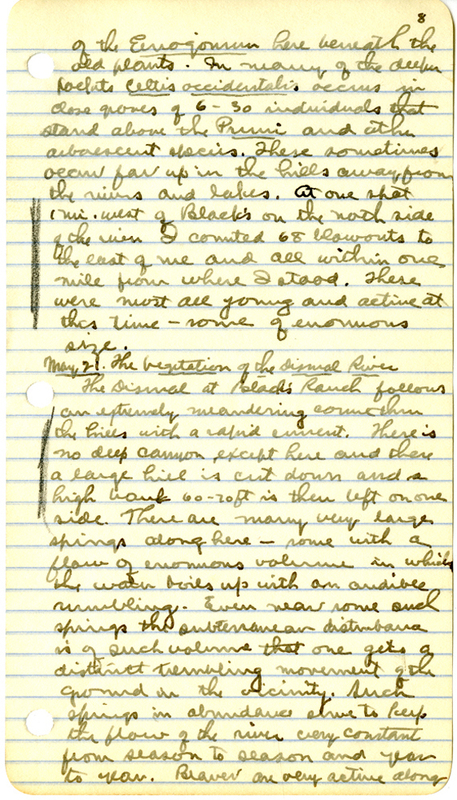 8
of the Eriogonum here beneath the
old plants. In many of the deeper
pockets Celtis occidentalis occurs in
close groves of 6-30 individuals that
stand above the Pruni and other
arborescent species. These sometimes
occur far up in the hills away from
the rivers and lakes. At one spot
1 mi. west of Black's on the north side
of the river I counted 68 blowouts to
the east of me and all within one
mile from where I stood. These
were most all young and active at
this time - some of enormous
size.
May 21. The vegetation of the Dismal River
The Dismal at Black's Ranch follows
an extremely meandering course thru
the hills with a rapid current. There is
no deep canyon except here and there
a large hill is cut down and a
high bank 60-70ft is then left on one
side. There are many very large
springs along here - some with a
flow of enormous volume in which
the water boils up with an audible
rumbling. Even near some such
springs the subterranean disturbance
is of such volume that one gets a
distinct trembling movement of the
ground in the vicinity. Such
springs in abundance serve to keep
the flow of the river very constant
from season to season and year
to year. Beaver are very active along